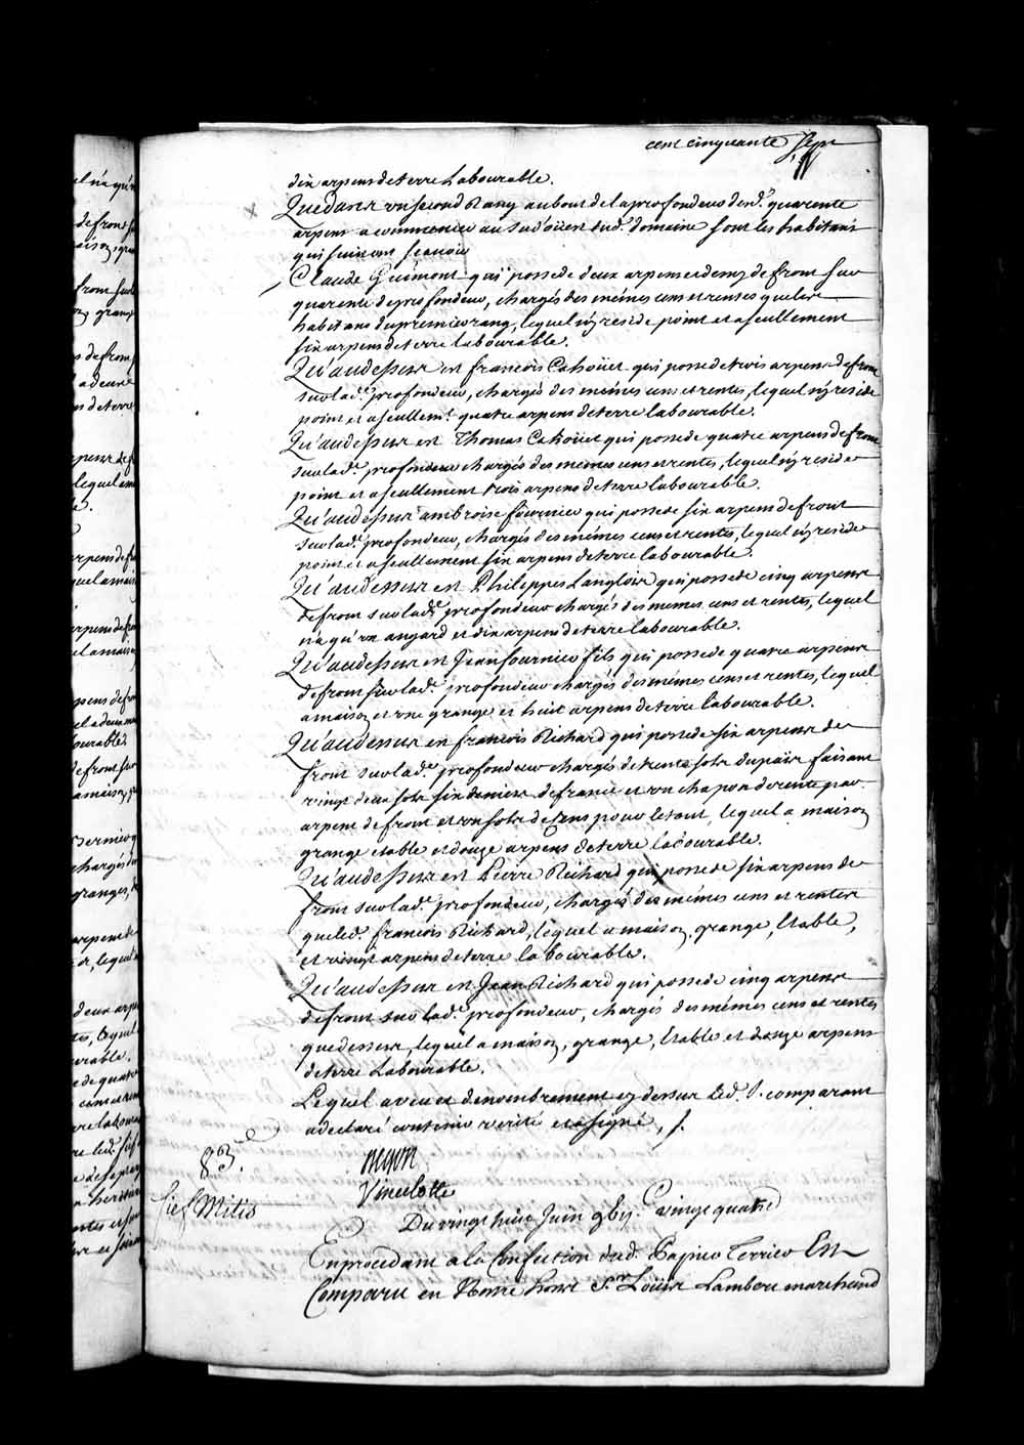 cent cinquante sept
dix arpens de terre Labourable.
Que dans un second Rang au bout de la profondeur desd. quarente
arpens a commencer au sud'oüest dud. domaine sont les habitans
qui suivent scavoir
Claude Guimont qui possede deux arpens et demy de front sur
quarente de profondeur, chargés des mêmes cens et rentes que les
habitans du premier rang, lequel n'y reside point et a seullement
six arpens de terre labourable.
Qu'audessus est francois Cahoüet qui possede trois arpens de front
sur lad.e profondeur, chargés des mêmes cens et rentes, lequel n'y reside
point et a seullemt. quatre arpens de terre labourable.
Qu'audessus est Thomas Cahoüet qui possede quatre arpens de front
sur lad.e profondeur chargés des mêmes cens et rentes, lequel n'y reside
point et a seullement trois arpens de terre labourable.
Qu'audessus ambroise fournier qui possede six arpens de front
sur lad.e profondeur, chargés des mêmes cens et rentes, lequel n'y reside
point et a seullement six arpens de terre labourable.
Qu'audessus est Philippes Langlois qui possede cinq arpens
de front sur lade. profondeur chargés des mêmes cens et rentes, lequel
n'a qu'un angard et dix arpens de terre labourable.
Qu'audessus est Jean fournier fils qui possede quatre arpens
de front sur lad.e profondeur chargés des mêmes cens et rentes, lequel
a maison et une grange et huit arpens de terre labourable.
Qu'audessus est francois Richard qui possede six arpens de
front sur lad.e profondeur chargés de trente sols du païs faisant
vingt deux sols six deniers de france et un chapon de rente par
arpent de front et un sols de Cens pour le tout, lequel a maison
grange etable et douze arpens de terre labourable.
Qu'audessus est Pierre Richard qui possede six arpens de
front sur lad.e profondeur, chargés des mêmes cens et rentes
que led. francois Richard, lequel a maison, grange, Etable,
et vingt arpens de terre labourable.
Qu'audessus est Jean Richard qui possede cinq arpens
de front sur lad.e profondeur, chargés des mêmes cens et rentes
que dessus, lequel a maison, grange, Etable et douze arpens
de terre Labourable.
Lequel aveu et denombrement cy dessus led. S. comparant
a declaré contenir verité et a signé, /.
83.e
Vincelotte
fief Mitis
Du vingt huit Juin vingt quatre
En procedant a la Confection dud. Papier Terrier Est
Comparu en Notre hotel Sr. Loüis Lambert marchand